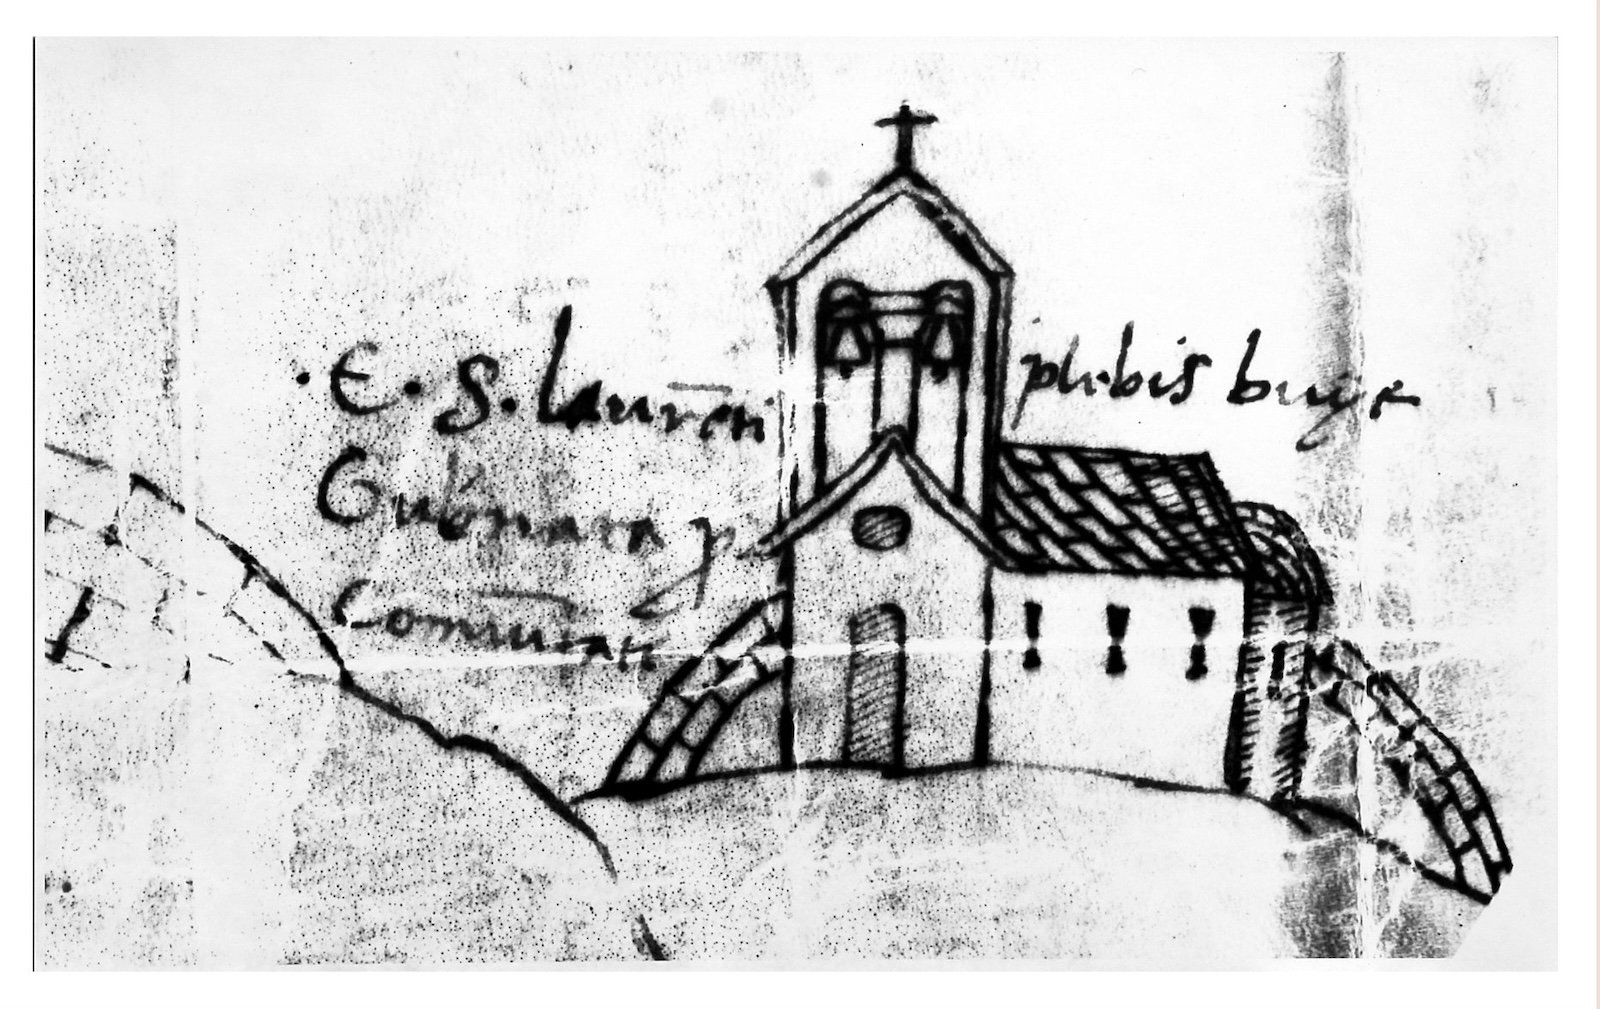 · E · S. laurēti plebis buye
Gubernata p
Comunitati